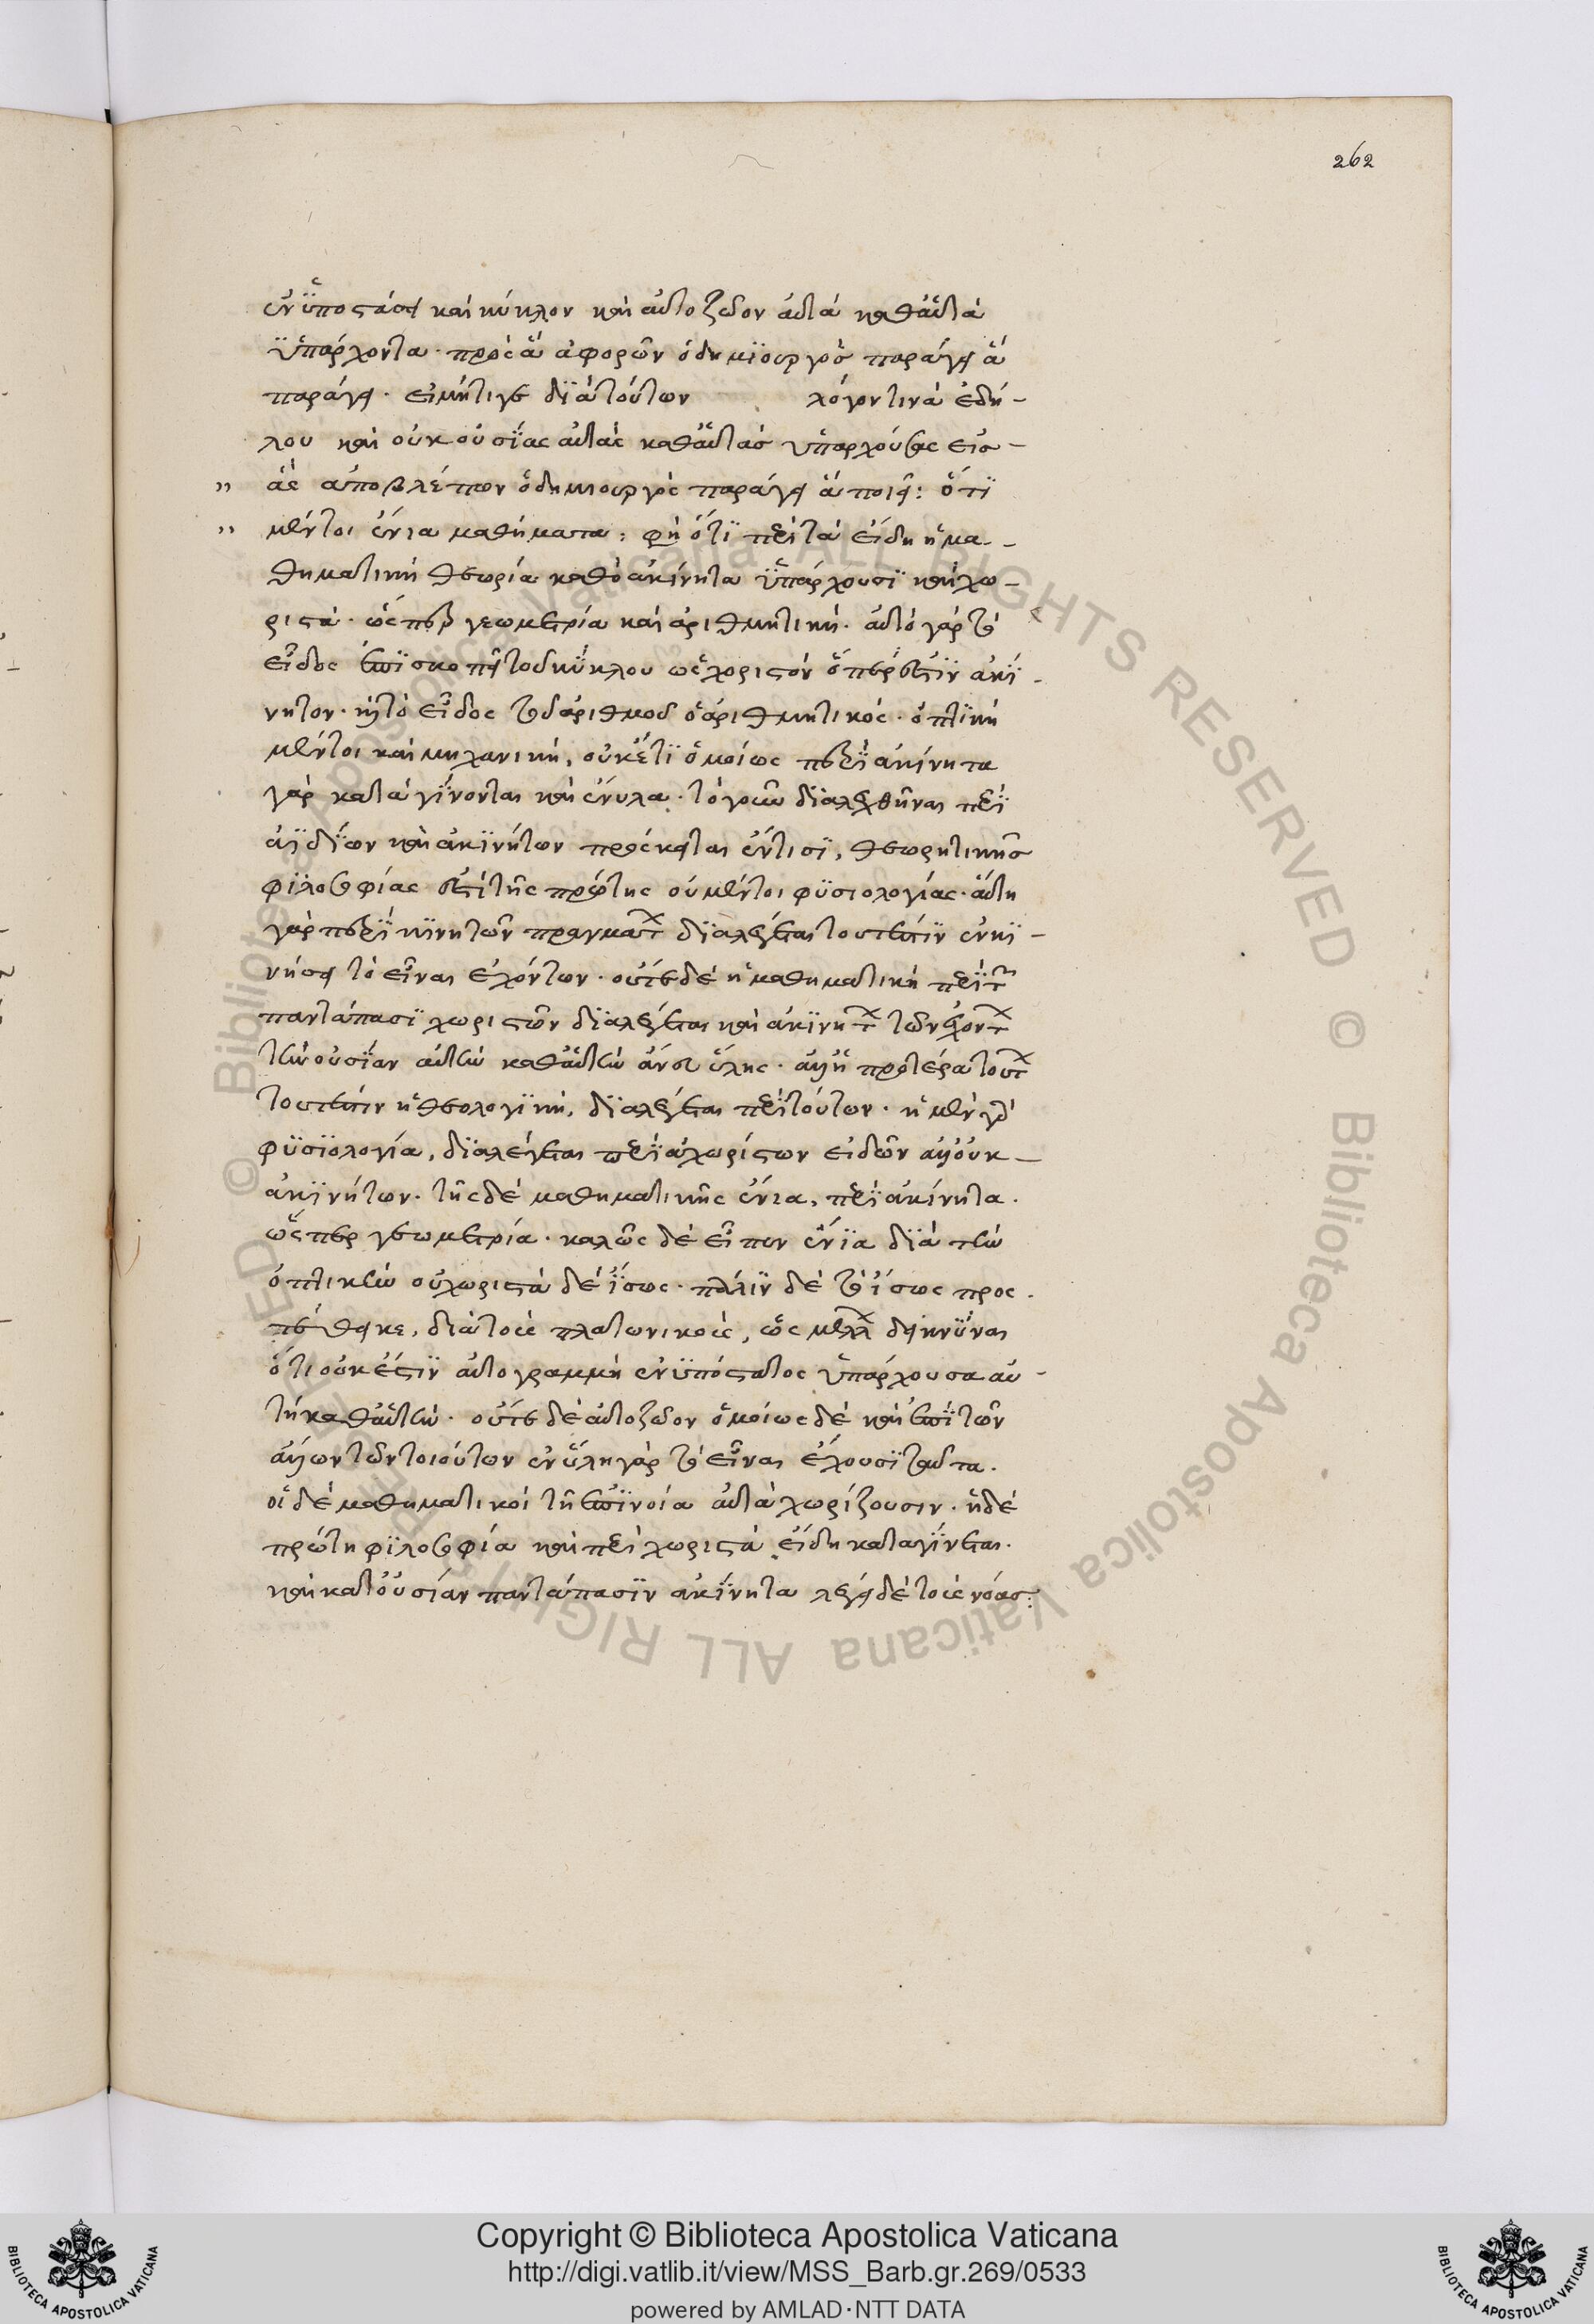 262
ἐνϋποστάσει καὶ κύκλον καὶ αὐτοζῶον αὐτὰ καθ' αὑτὰ
ὑπάρχοντα. πρὸς ἃ ἀφορῶν ὁ δημϊουργὸς παράγει ἃ
παράγει. εἰμήτιγε διὰ τούτων λόγον τινὰ ἐδή-
λου καὶ οὐκ οὐσίας αὐτὰς καθ' αὑτὰς ὑπαρχούσας εἰσ-
ἃς ἀποβλέπων ὁ δημιουργὸς παράγει ἃ ποιεῖ: ὅτι
μέντοι ἔνια μαθήματα: φὴ ὅτι περὶ τὰ εἴδη ἡ μα-
θηματικὴ θεωρία καθὸ ἀκίνητα ὑπάρχουσι καὶ χω-
ριστά. ὥσπερ γεωμετρία καὶ ἀριθμητική. αὐτὸ γὰρ τὸ
εἶδος ἐπισκοπεῖ τοῦ κύκλου ὡς χοριστόν ὅπερ ἐστὶν ἀκί-
νητον. καὶ τὸ εἶδος τοῦ ἀριθμοῦ ὁ ἀριθμητικός. ὀπτικὴ
μέντοι καὶ μηχανικὴ, οὐκέτι ὁμοίως περὶ ἀκίνητα
γὰρ καταγίνονται καὶ ἔνυλα. τὸ γοῦν διαλεχθῆναι περὶ
ἀϊδίων καὶ ἀκινήτων πρόσκειται ἔντισι, θεωρητικῆς
φιλοσοφίας ἐστὶ τῆς πρώτης οὐ μέντοι φυσιολογίας. αὕτη
γὰρ περὶ κινητῶν πραγμάτων διαλέγεται τουτέστιν ἐν κι-
νήσει τὸ εἶναι ἐχόντων. οὔτε δὲ ἡ μαθηματικὴ περὶ τῶν
παντάπασι χωριστῶν διαλέγεται καὶ ἀκινήτων τῶν ἐχόντων
τὴν οὐσίαν αὐτὴν καθ' αὑτὴν ἄνευ ὕλης. ἀλλ' ἡ προτέρα τούτων
τουτέστιν ἡ θεολογικὴ, διαλέγεται περὶ τούτων. ἡ μὲν γὰρ
φυσιολογία, διαλέγεται περὶ ἀχωρίστων εἰδῶν ἀλλ' οὐκ-
ἀκινήτων. τῆς δὲ μαθηματικῆς ἔνια, περὶ ἀκίνητα.
ὥσπερ γεωμετρία. καλῶς δὲ εἶπεν ἔνια διὰ τὴν
ὀπτικὴν οὐ χωριστὰ δὲ ἴσως. πάλιν δὲ τὸ ἴσως προσ-
τέθεικε, διὰ τοὺς πλατωνικοὺς, ὡς μέλλων δεικνύναι
ὅτι οὐκ ἔστιν αὐτογραμμὴ ἐνυπόστατος ὑπάρχουσα αὐ-
τὴ καθ' αὑτήν. οὔτε δὲ αὐτοζῶον ὁμοίως δὲ καὶ ἐπὶ τῶν
ἄλλων τῶν τοιούτων ἐν ὕλη γὰρ τὸ εἶναι ἔχουσι ταῦτα.
οἱ δὲ μαθηματικοὶ τῆ ἐπινοία αὐτὰ χωρίζουσιν. ἡ δὲ
πρώτη φιλοσοφία καὶ περὶ χωριστὰ εἴδη καταγίνεται.
καὶ κατ' οὐσίαν παντάπασιν ἀκίνητα λέγει δὲ τοὺς νόας:
Copyright © Biblioteca Apostolica Vaticana
http://digi.vatlib.it/view/MSS_Barb.gr.269/0533
powered by AMLAD·NTT DATA